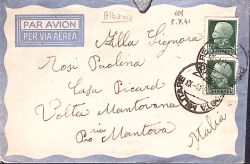 Albania
5.7.41
PAR AVION
PER VIA AEREA
Alla Signora
Rosi Paolina
Casa Picard
Volta Mantovana
Mantova
Italia